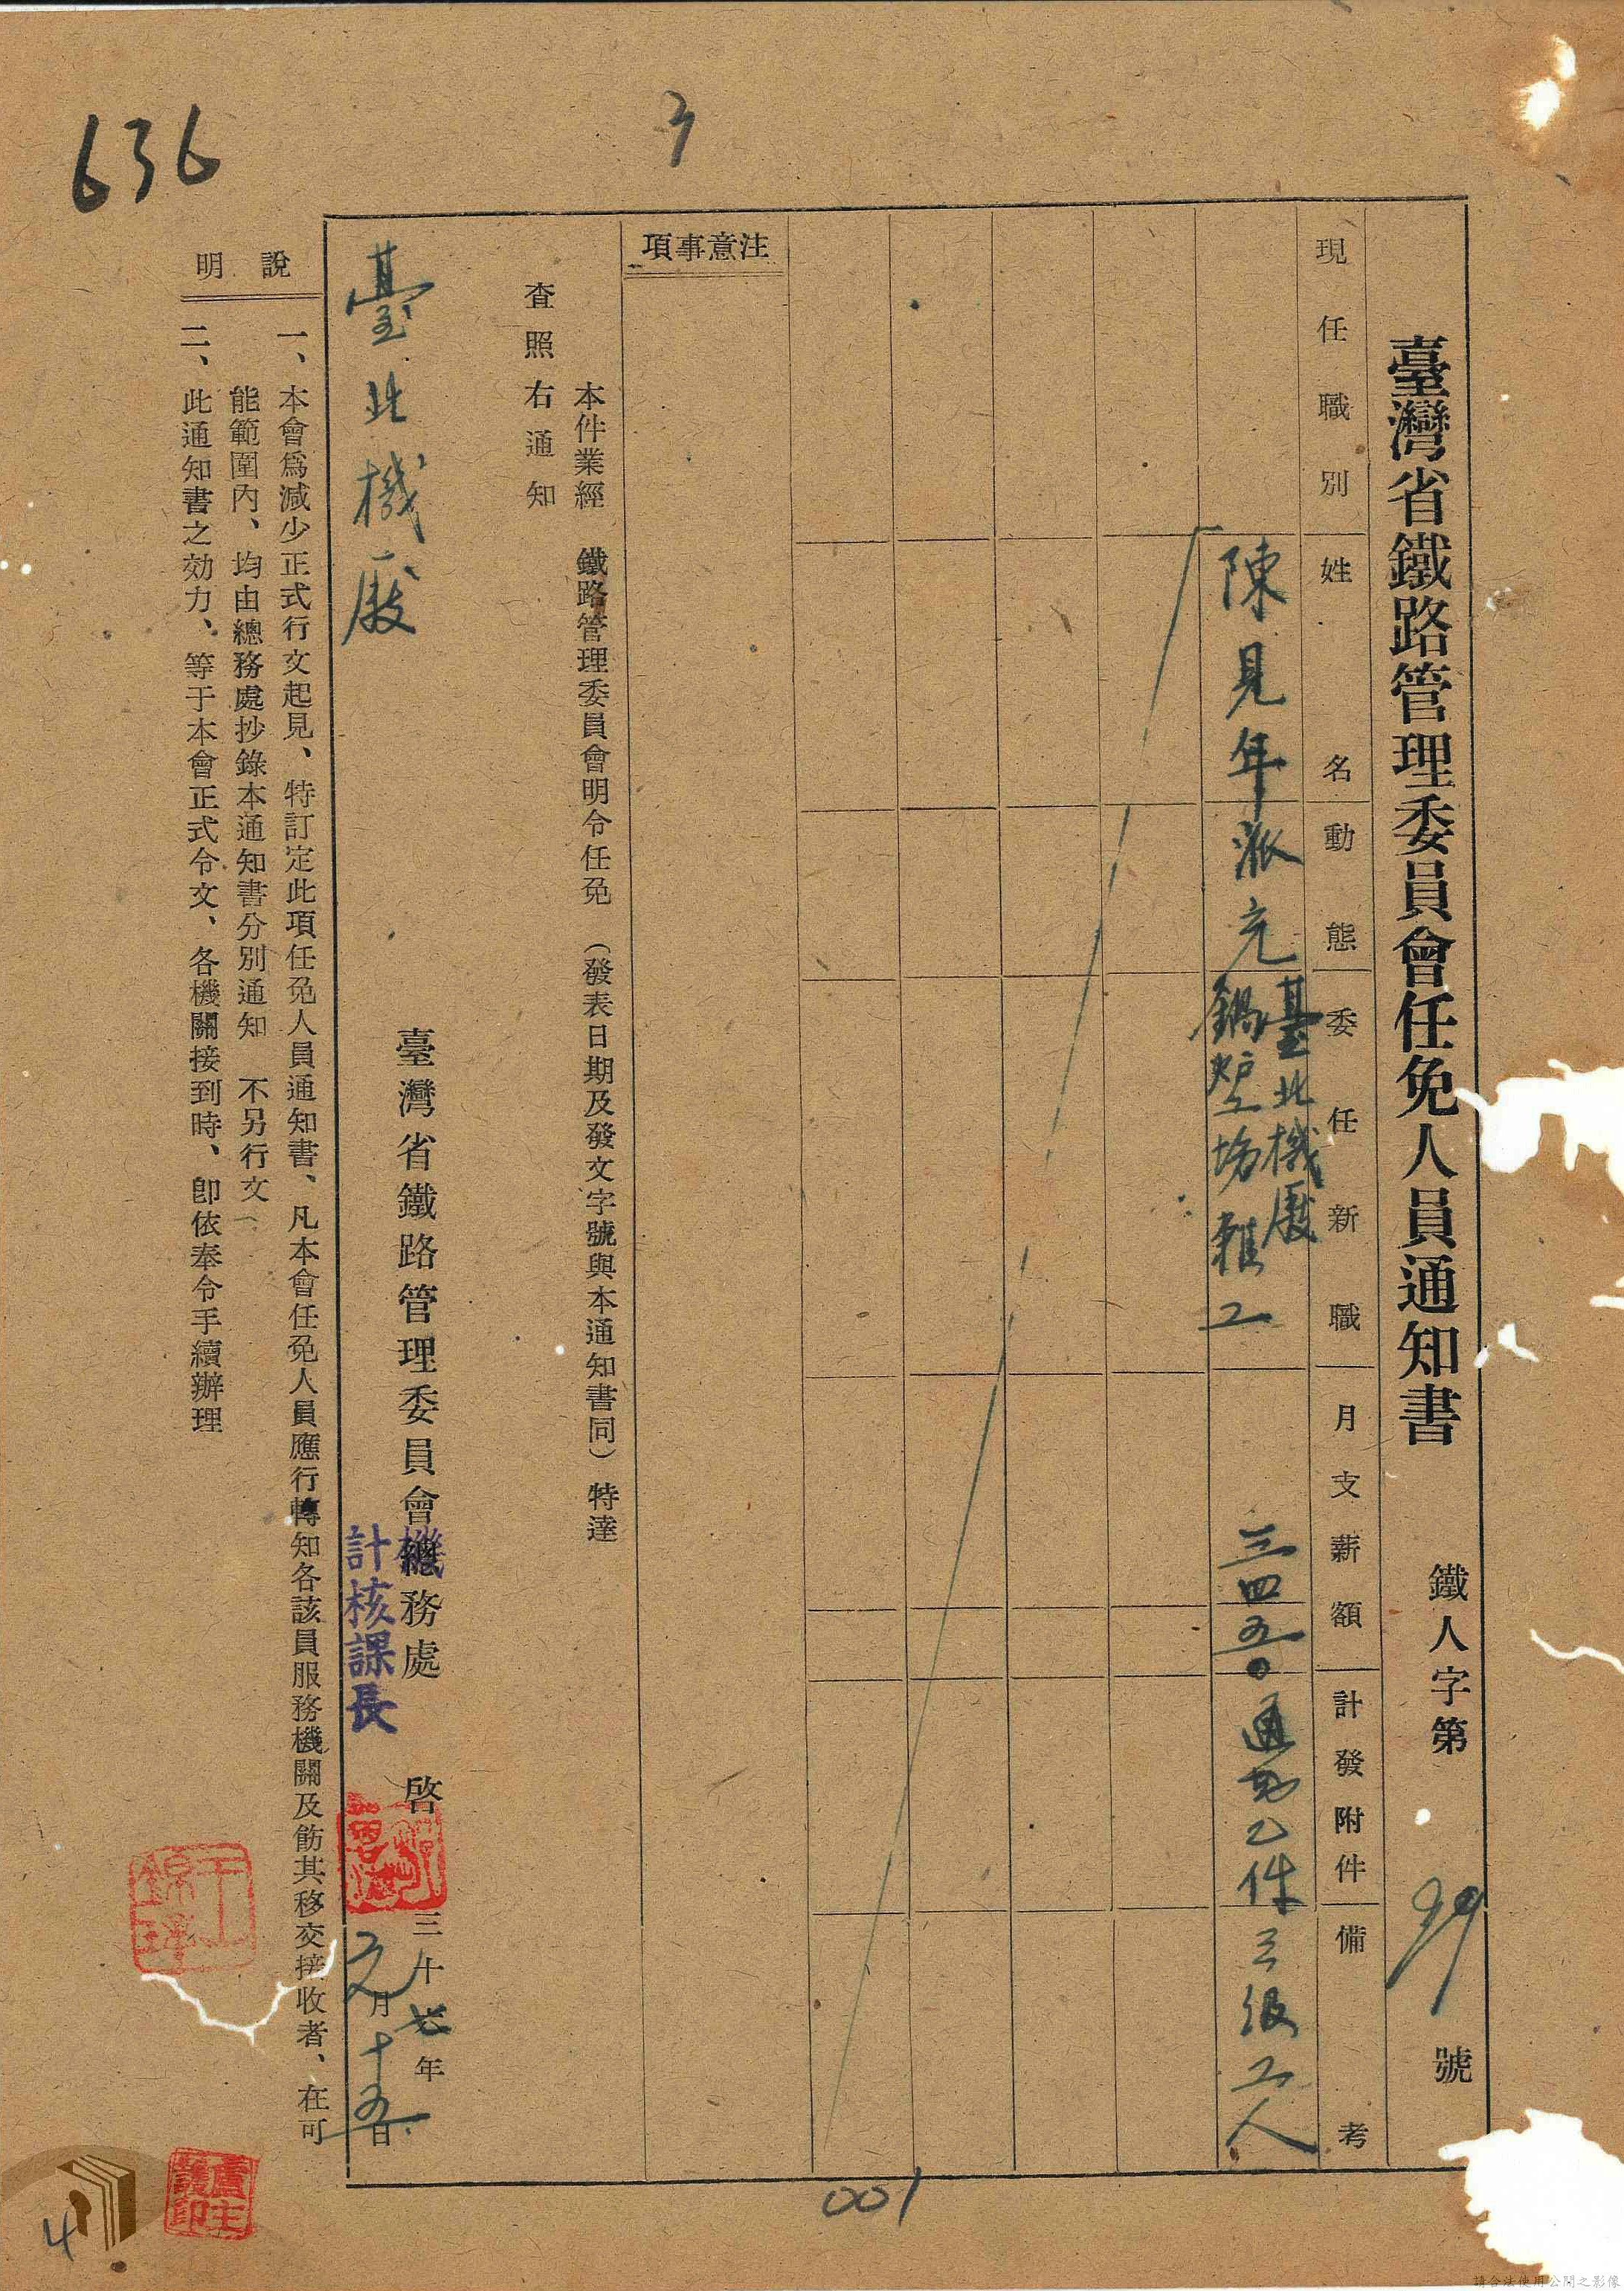 臺灣省鐵路管理委員會任免人員通知書
鐵人字第 號
現任職別
姓名
動態
委任新職
月支薪額
計發附件
備考
陳見年
派充
臺北機廠
鍋炉
場雜工
三四五〇
通知乙件
三級工人
注意事項
本件業經 鐵路管理委員會明令任免 (發表日期及發文字號與本通知書同) 特達
查照右通知
臺北機廠
臺灣省鐵路管理委員會總務處 啓
機
計核課長
三十七年
元月十五日
說明
一、本會爲減少正式行文起見、特訂定此項任免人員通知書、凡本會任免人員應行轉知各該員服務機關及飭其移交接收者、在可
能範圍內、均由總務處抄錄本通知書分別通知 不另行文
二、此通知書之効力、等于本會正式令文、各機關接到時、卽依奉令手續辦理
636
3
001
4
請合法使用公開之影像